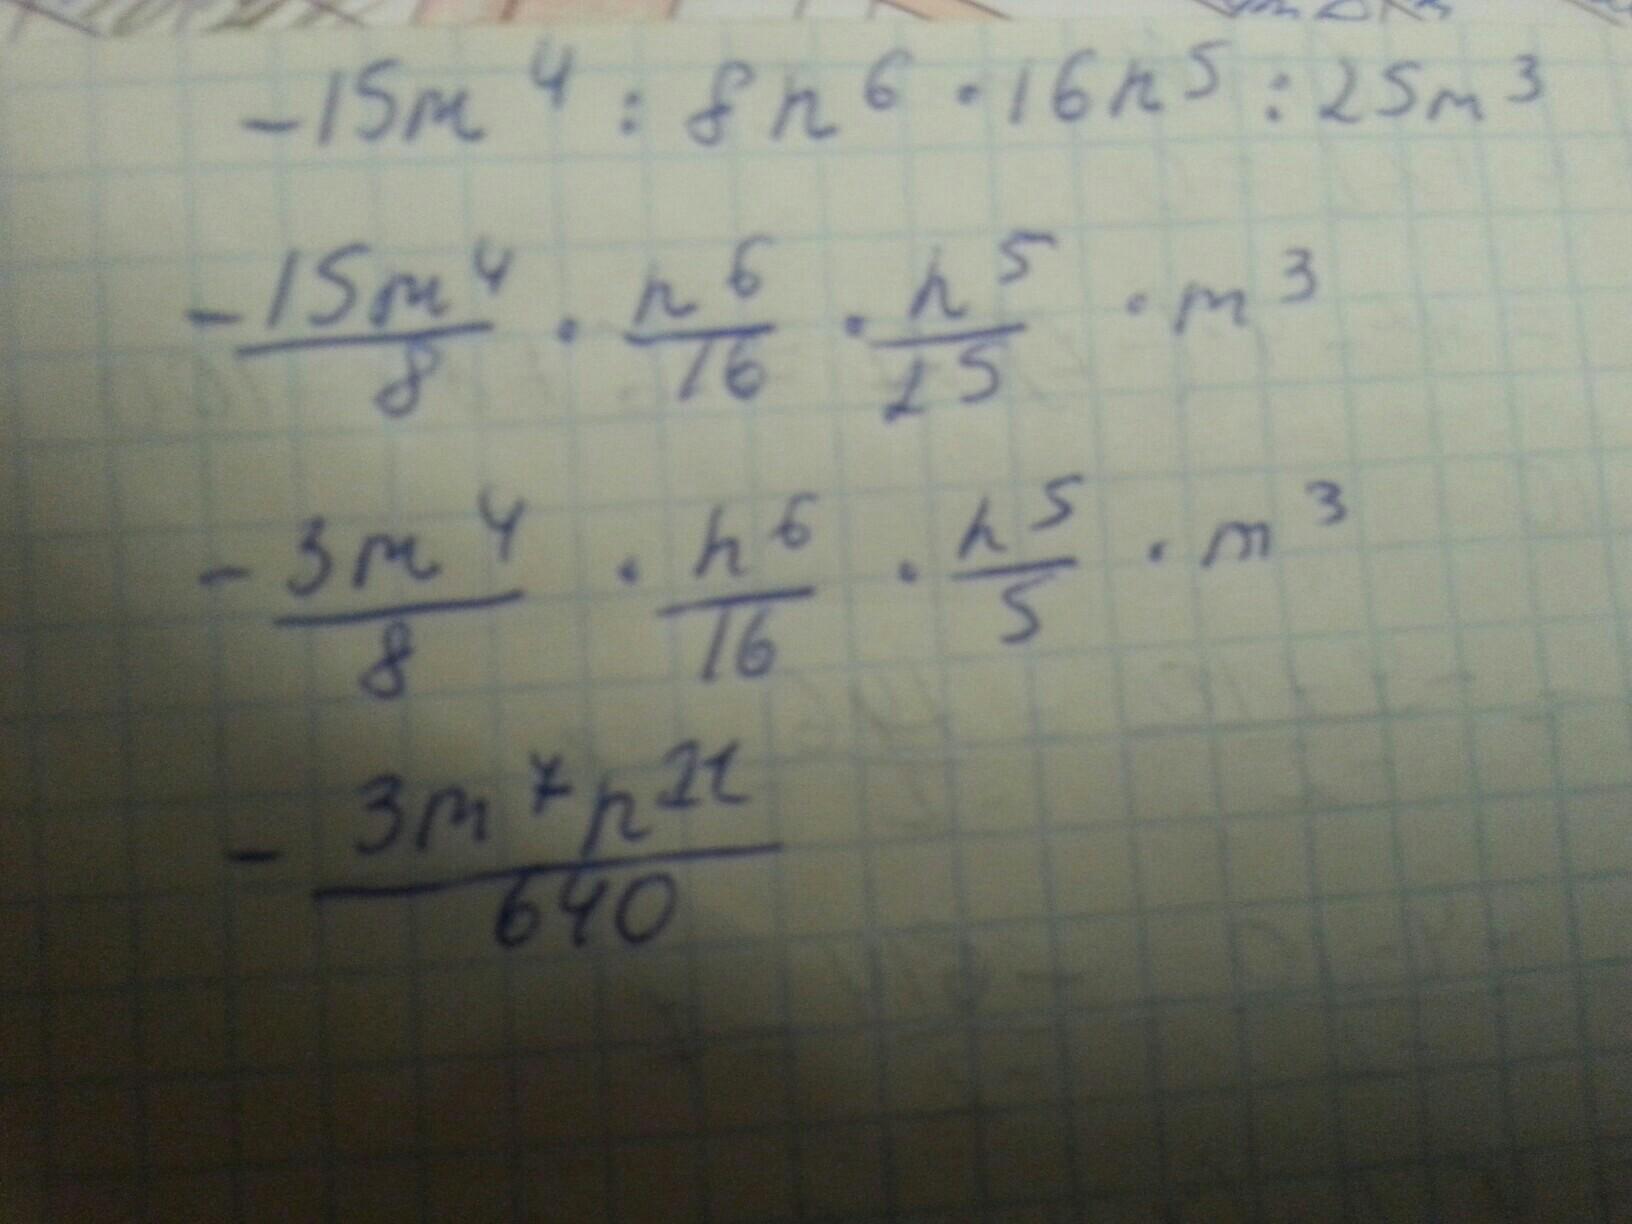 -15m⁴ : 8n⁶ · 16n⁵ : 25m³
-15m⁴/8 · n⁶/16 · n⁵/25 · m³
-3m⁴/8 · n⁶/16 · n⁵/5 · m³
-3m⁷n¹¹/640